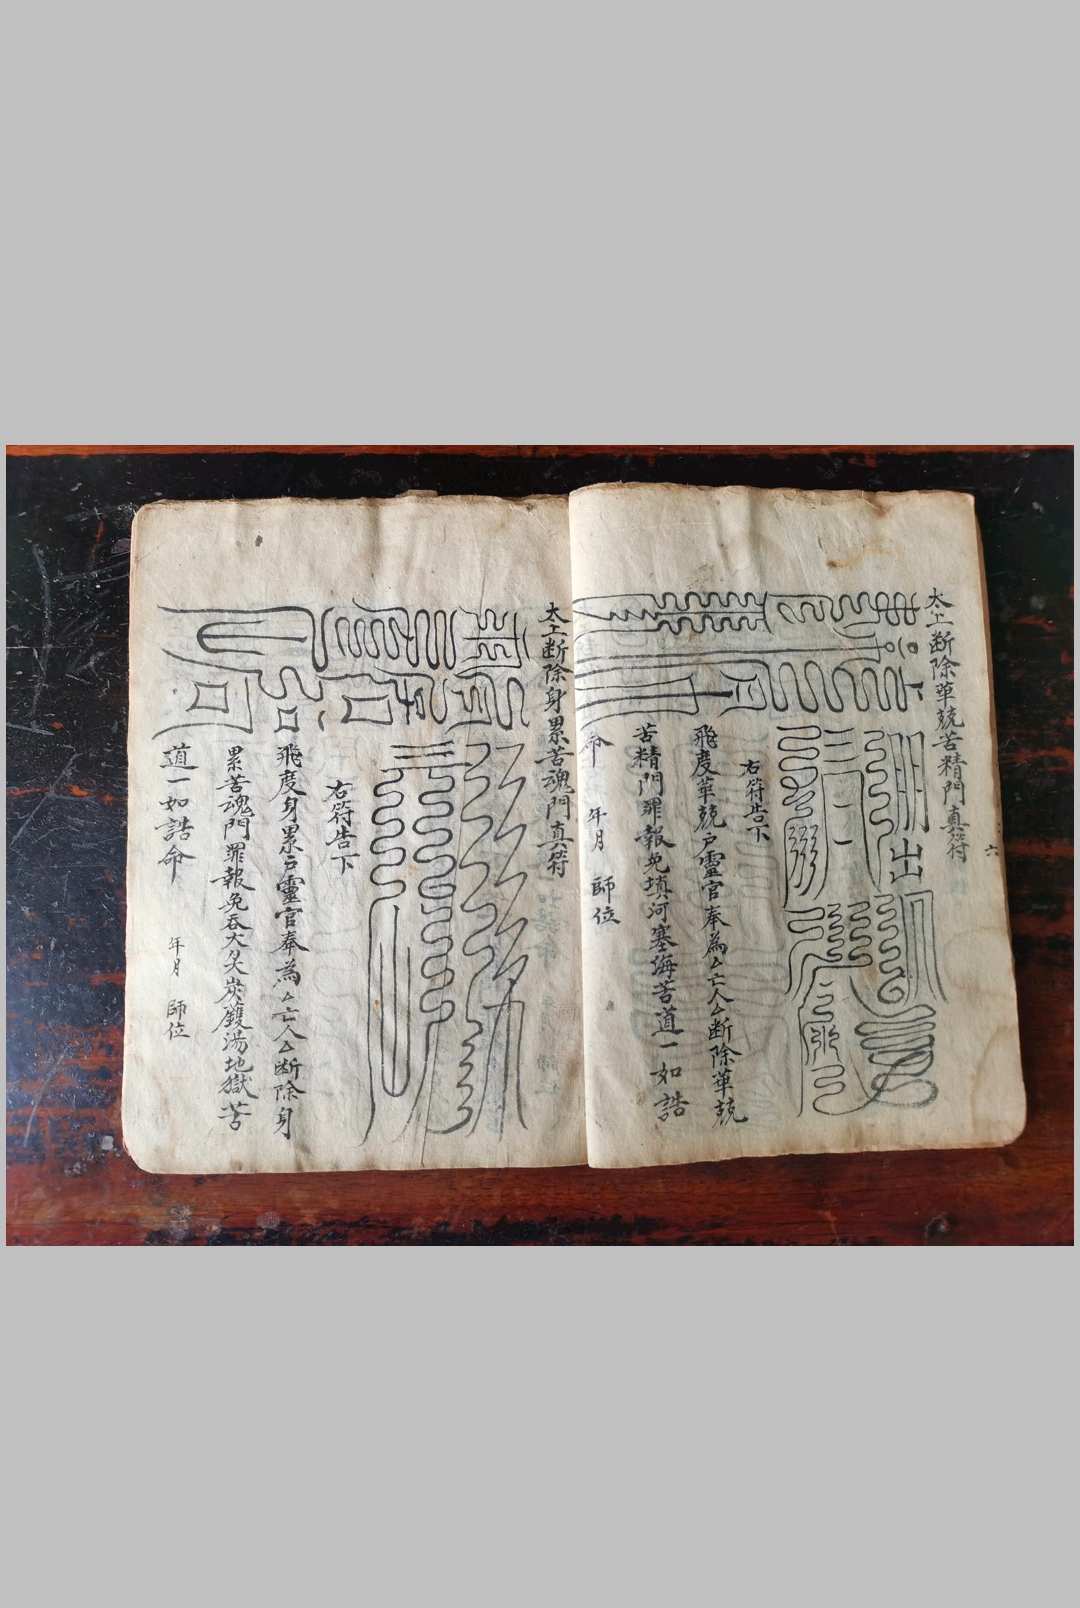 太上断除華競苦精門真符
六
右符告下
飛度華競户靈官奉為厶亡人厶断除華競
苦精門罪報免填河塞海苦道一如誥
命 年月 師位
太上断除身累苦魂門真符
右符告下
飛度身累户靈官奉為厶亡人厶断除身
累苦魂門罪報免吞火炭鑊湯地獄苦
道一如誥命 年月 師位